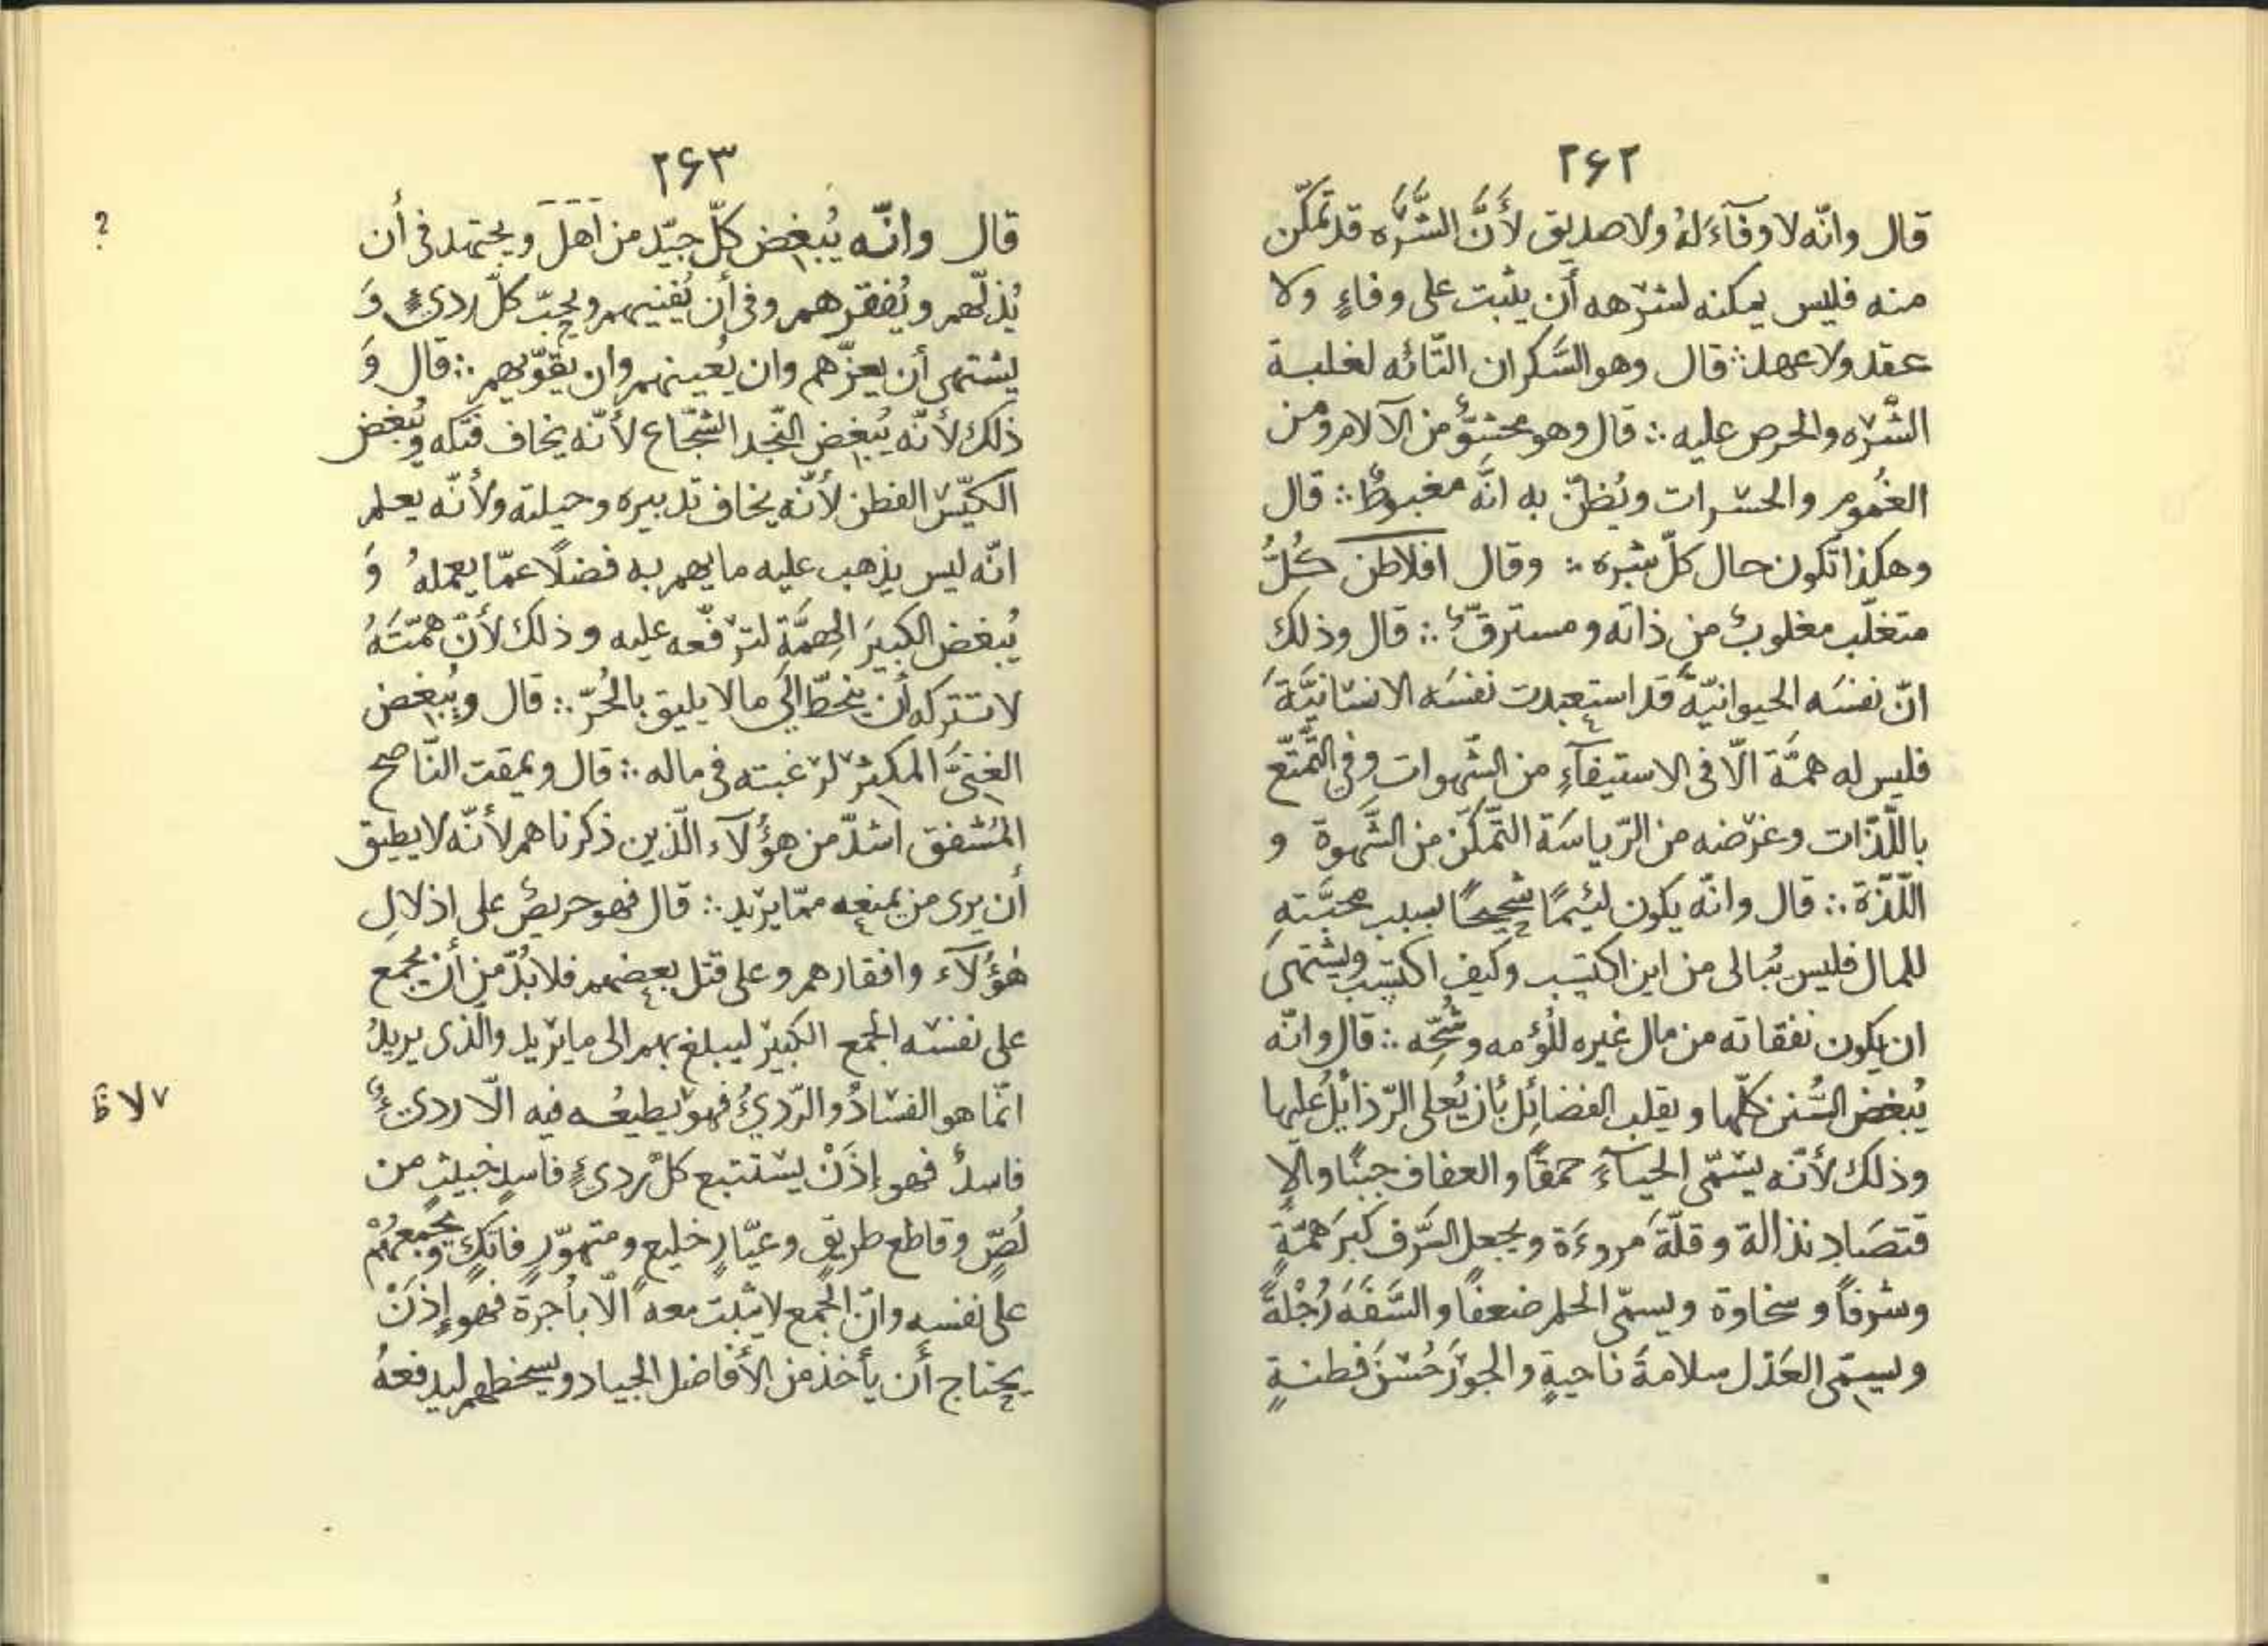 ٢۶٢
قال وانّه لا وفآءَ لهُ ولا صديق لأَنَّ الشَّرَه قد تمكّن
منه فليس يمكنه لشرهه أن يثبت على وفاءٍ ولا
عقد ولا عهد ∴ قال وهو السَّكران التّائه لغلبة
الشّره والحرص عليه ∴ قال وهو محشوٌّ من الآلام ومن
الغُموم والحسرات ويُظنّ به انَّه مغبوطٌ ∴ قال
وهكذا تكون حال كلّ شره ∴ وقال افلاطن كُلُّ
متغلّب مغلوبٌ من ذاته ومسترقٌّ ∴ قال وذلك
انّ نفسَه الحيوانيّةَ قد استعبدت نفسَه الانسانيَّةَ
فليس له همَّة الّا فى الاستيفآءِ من الشّهوات وفى التَّمتّع
باللّذّات وغرضه من الرّياسَة التّمكّن من الشَّهوة و
اللّذّة ∴ قال وانّه يكون لئيمًا شحيحًا بسبب محبَّتهِ
للمال فليس يُبالى من اين اكتسب وكيف اكتسب ويشتهى
ان يكون نفقاته من مال غيره للُؤمه وشُحّه ∴ قال وانّه
يُبغض السُّنن كلّها ويقلب الفضائِل بأن يُعلى الرّذائلَ عليها
وذلك لأنّه يسَمّى الحيآءَ حمقًا والعفاف جبنًا والإ
قتصَاد نذالة وقلّةَ مروءَة ويجعل السَّرف كبَر همّةٍ
وشرفاً وسخاوة ويسمّى الحلم ضعفًا والسَّفَهَ رُجْلةً
ويسمّى العَدْل سلامةَ ناحيةٍ والجوْرَ حُسْنَ فطنةٍ
٢۶٣
قال وانّه يُبغض كلّ جيّد من اهل ويجتهد فى أن
يُذلّهم ويُفقرهم وفى أن يُفنيهم ويحبّ كلّ ردىءٍ وَ
يشتهى أن يعزّهم وان يُعينهم وان يقوّيهم ∴ قال وَ
ذلك لأنّه يُبغض النّجد الشّجّاع لأنّه يخاف فتكه ويُبغض
الكيّس الفطن لأنّه يخاف تدبيره وحيلته ولأنّه يعلم
انّه ليس يذهب عليه ما يهم به فضلًا عمّا يعملهُ وَ
يُبغض الكبيَر الهِمَّةِ لترفّعه عليه وذلك لأنّ همّتَهُ
لا تتركه أن ينحطّ الى ما لا يليق بالحُرّ ∴ قال ويُبغض
الغنىَّ المكثر لرغبته فى ماله ∴ قال ويمقت النّاصح
المُشفق اشدّ من هؤُلآء الّذين ذكرناهم لأنّه لا يطيق
أن يرى من يمنعه ممّا يريد ∴ قال فهو حريصٌ على اذلالِ
هٰؤُلآء وافقارهم وعلى قتل بعضهم فلا بُدّ من أن يجمع
على نفسه الجمع الكبير ليبلغ بهم الى ما يريد والّذى يريدُ
انّما هو الفسَادُ والرّدىُ فهو يطيعُه فيه الّا ردىءٌ
فاسدٌ فهو إذَنْ يستتبع كلّ ردىءٍ فاسدٍ خبيثٍ من
لُصٍّ وقاطع طريقٍ وعيّارٍ خليعٍ ومتهوّرٍ فاتكٍ ويجمعهُمْ
على نفسهِ وانّ الجمع لا يثبت معه الّا بأُجرة فهو إذَنْ
يحتاج أَن يأخذ من الأفاضل الجياد ويسخطهم ليدفعهُ
?
٧ لا ظ